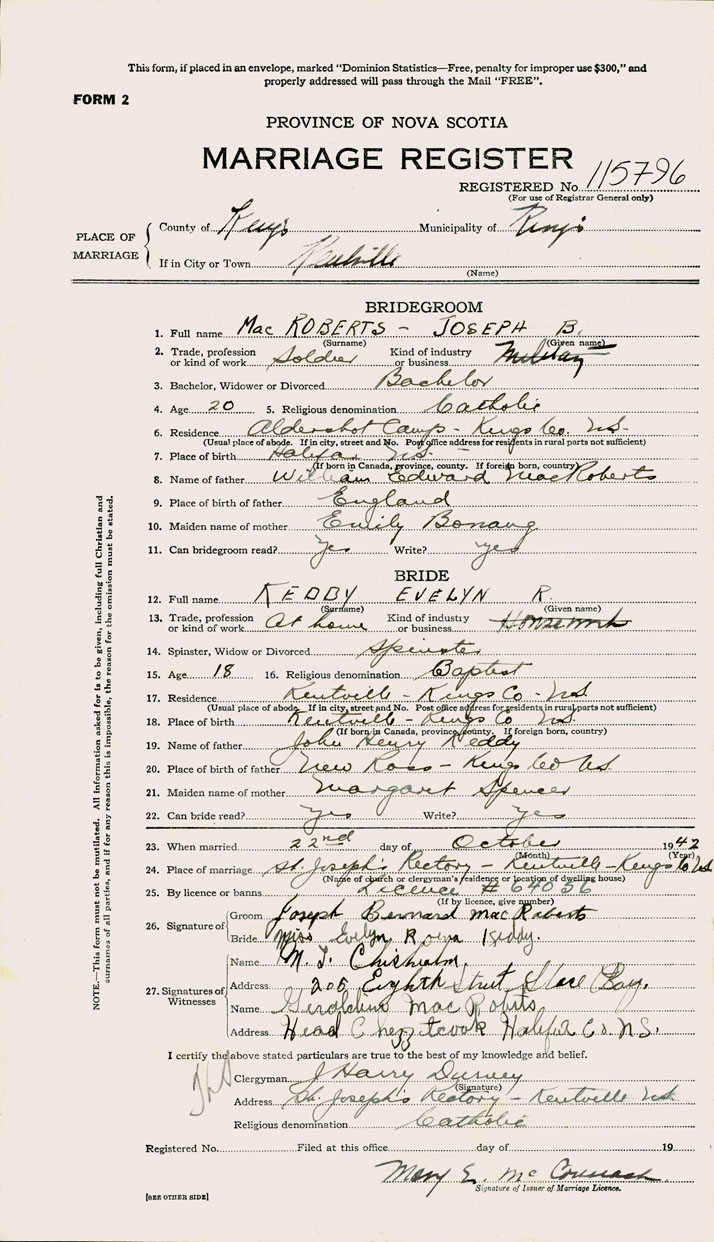 This form, if placed in an envelope, marked "Dominion Statistics—Free, penalty for improper use $300," and
properly addressed will pass through the Mail "FREE".
FORM 2
PROVINCE OF NOVA SCOTIA
MARRIAGE REGISTER
REGISTERED No. 115796
(For use of Registrar General only)
PLACE OF MARRIAGE
County of Kings Municipality of Kings
If in City or Town Kentville
(Name)
BRIDEGROOM
1. Full name Mac ROBERTS - JOSEPH B.
(Surname) (Given name)
2. Trade, profession or kind of work Soldier Kind of industry or business Military
3. Bachelor, Widower or Divorced Bachelor
4. Age 20 5. Religious denomination Catholic
6. Residence Aldershot Camp - Kings Co. N.S.
(Usual place of abode. If in city, street and No. Post office address for residents in rural parts not sufficient)
7. Place of birth Halifax N.S.
(If born in Canada, province, county. If foreign born, country)
8. Name of father William Edward MacRoberts
9. Place of birth of father England
10. Maiden name of mother Emily Bonang
11. Can bridegroom read? Yes Write? Yes
BRIDE
12. Full name KEDDY EVELYN R.
(Surname) (Given name)
13. Trade, profession or kind of work At home Kind of industry or business Housework
14. Spinster, Widow or Divorced Spinster
15. Age 18 16. Religious denomination Baptist
17. Residence Kentville - Kings Co - N.S.
(Usual place of abode. If in city, street and No. Post office address for residents in rural parts not sufficient)
18. Place of birth Kentville - Kings Co N.S.
(If born in Canada, province, county. If foreign born, country)
19. Name of father John Henry Keddy
20. Place of birth of father New Ross - Kings Co N.S.
21. Maiden name of mother Margaret Spencer
22. Can bride read? Yes Write? Yes
23. When married 22nd day of October 1942
(Month) (Year)
24. Place of marriage St. Joseph's Rectory - Kentville - Kings Co N.S
(Name of church or clergyman's residence or location of dwelling house)
25. By licence or banns Licence # 64056
(If by licence, give number)
26. Signature of
Groom Joseph Bernard MacRoberts
Bride Miss Evelyn Rowena Keddy.
27. Signatures of Witnesses
Name M. J. Chisholm
Address 205 Eighth Street, Glace Bay.
Name Geraldine MacRoberts
Address Head Chezzetcook Halifax Co. N.S.
I certify the above stated particulars are true to the best of my knowledge and belief.
Clergyman J Harry Durney
(Signature)
Address St. Joseph's Rectory - Kentville N.S.
Religious denomination Catholic
Registered No. Filed at this office day of 19
Mary E. McCormack
Signature of Issuer of Marriage Licence.
[SEE OTHER SIDE]
NOTE.—This form must not be mutilated. All information asked for is to be given, including full Christian and
surnames of all parties, and if for any reason this is impossible, the reason for the omission must be stated.